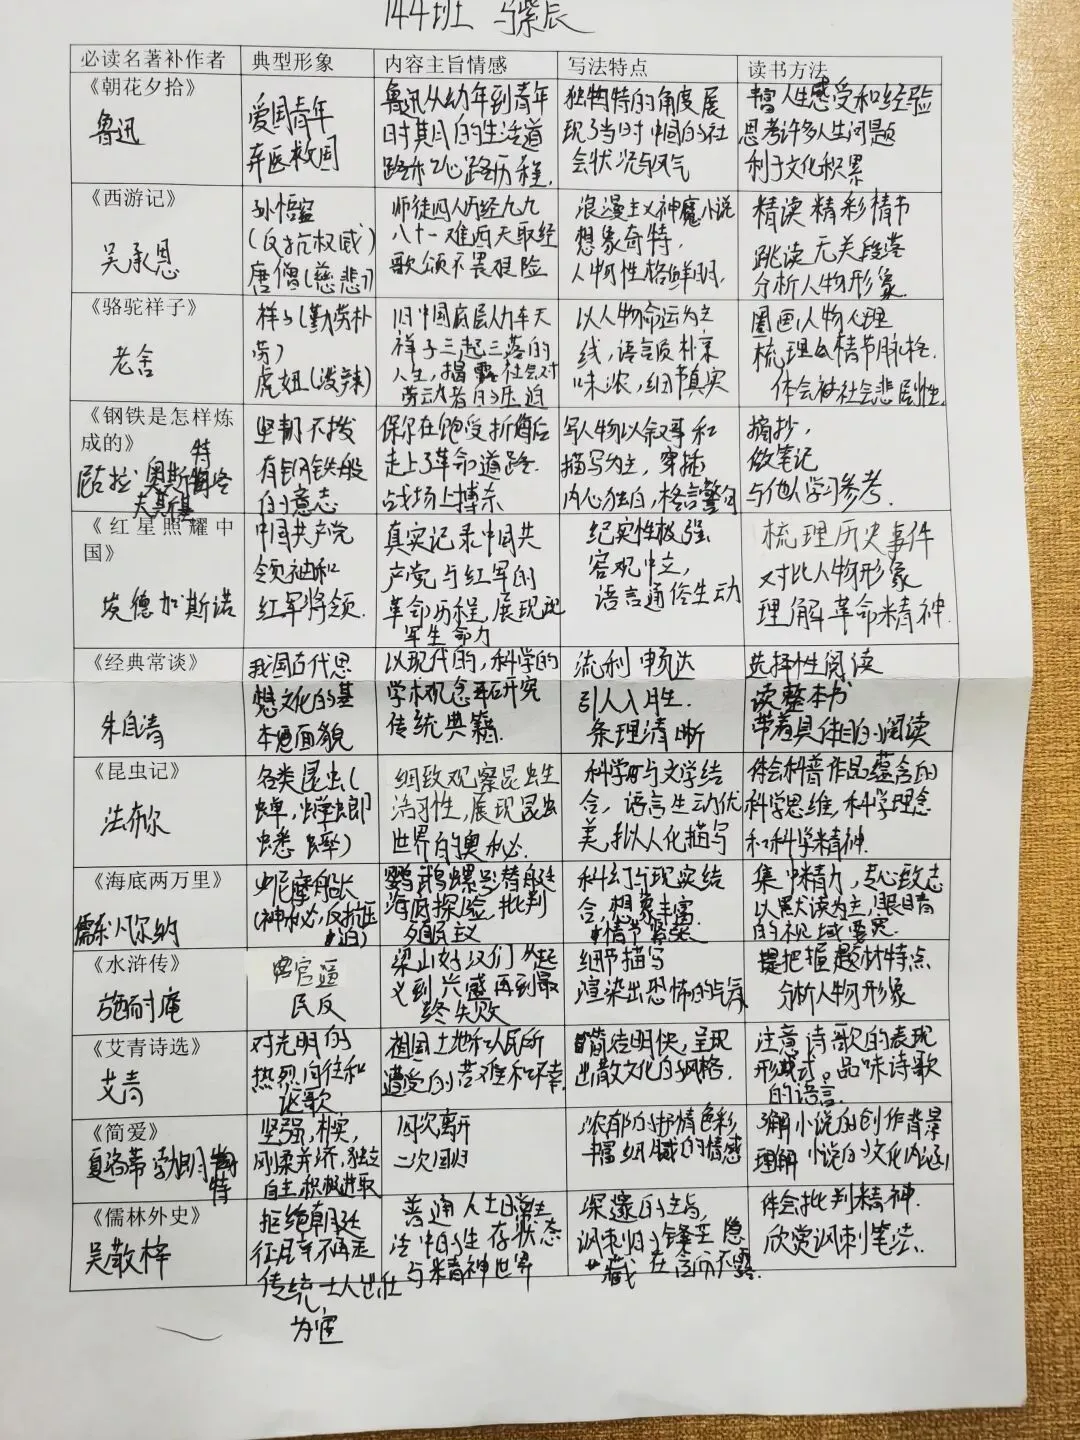 144班 马紫辰
必读名著补作者 典型形象 内容主旨情感 写法特点 读书方法
《朝花夕拾》
鲁迅
爱国青年
弃医救国
鲁迅从幼年到青年
时期的生活道
路和心路历程.
独特的角度展
现了当时中国的社
会状况与风气
丰富人生感受和经验
思考许多人生问题
利于文化积累
《西游记》
吴承恩
孙悟空
(反抗权威)
唐僧(慈悲)
师徒四人历经九九
八十一难西天取经
歌颂不畏艰险
浪漫主义神魔小说
想象奇特,
人物性格鲜明.
精读精彩情节
跳读无关段落
分析人物形象.
《骆驼祥子》
老舍
祥子(勤劳朴
劳)
虎妞(泼辣)
旧中国底层人力车夫
祥子三起三落的
人生,揭露社会对
劳动者的压迫
以人物命运为主
线,语言质朴京
味浓,细节真实
圈画人物心理
梳理情节脉络.
体会社会悲剧性.
《钢铁是怎样炼
成的》
尼古拉·奥斯特洛
夫斯基
坚韧不拨
有钢铁般
的意志
保尔在饱受折磨后
走上了革命道路.
战场上搏杀
写人物以叙事和
描写为主,穿插
内心独白,格言警句
摘抄,
做笔记
与他人学习参考.
《红星照耀中
国》
埃德加·斯诺
中国共产党
领袖和
红军将领.
真实记录中国共
产党与红军的
革命历程,展现红
军生命力
纪实性极强
客观中立,
语言通俗生动
梳理历史事件
对比人物形象
理解革命精神.
《经典常谈》
朱自清
我国古代思
想文化的基
本面貌
以现代的,科学的
学术观念研究
传统典籍.
流利畅达
引人入胜.
条理清晰
选择性阅读
读整本书
带着具体目的阅读
《昆虫记》
法布尔
各类昆虫(
蝉,螳螂
蟋蟀)
细致观察昆虫生
活习性,展现昆虫
世界的奥秘.
科学与文学结
合,语言生动优
美,拟人化描写
体会科普作品蕴含的
科学思维,科学理念
和科学精神.
《海底两万里》
儒尔·凡尔纳
尼摩船长
(神秘,反抗压
迫)
鹦鹉螺号潜艇
海底探险,批判
殖民主义
科幻与现实结
合,想象丰富.
情节紧张.
集中精力,专心致志
以默读为主,眼睛
的视域要宽.
《水浒传》
施耐庵
官逼
民反
梁山好汉们从起
义到兴盛再到最
终失败
细节描写
渲染出恐怖的气氛
把握题材特点
分析人物形象
《艾青诗选》
艾青
对光明的
热烈向往和
讴歌
祖国土地和人民所
遭受的苦难和不幸.
简洁明快,呈现
出散文化的风格.
注意诗歌的表现
形式。品味诗歌
的语言.
《简爱》
夏洛蒂·勃朗
特
坚强,朴实,
刚柔并济,独立
自主积极进取
四次离开
二次回归
浓郁的抒情色彩
丰富细腻的情感
了解小说的创作背景
理解小说的文化内涵
《儒林外史》
吴敬梓
拒绝朝廷
征辟,不再走
传统士人出仕
为官
普通人士日常生
活中的生存状态
与精神世界
深邃的主旨,
讽刺的锋芒隐
藏在言间不露.
体会批判精神.
欣赏讽刺笔法.